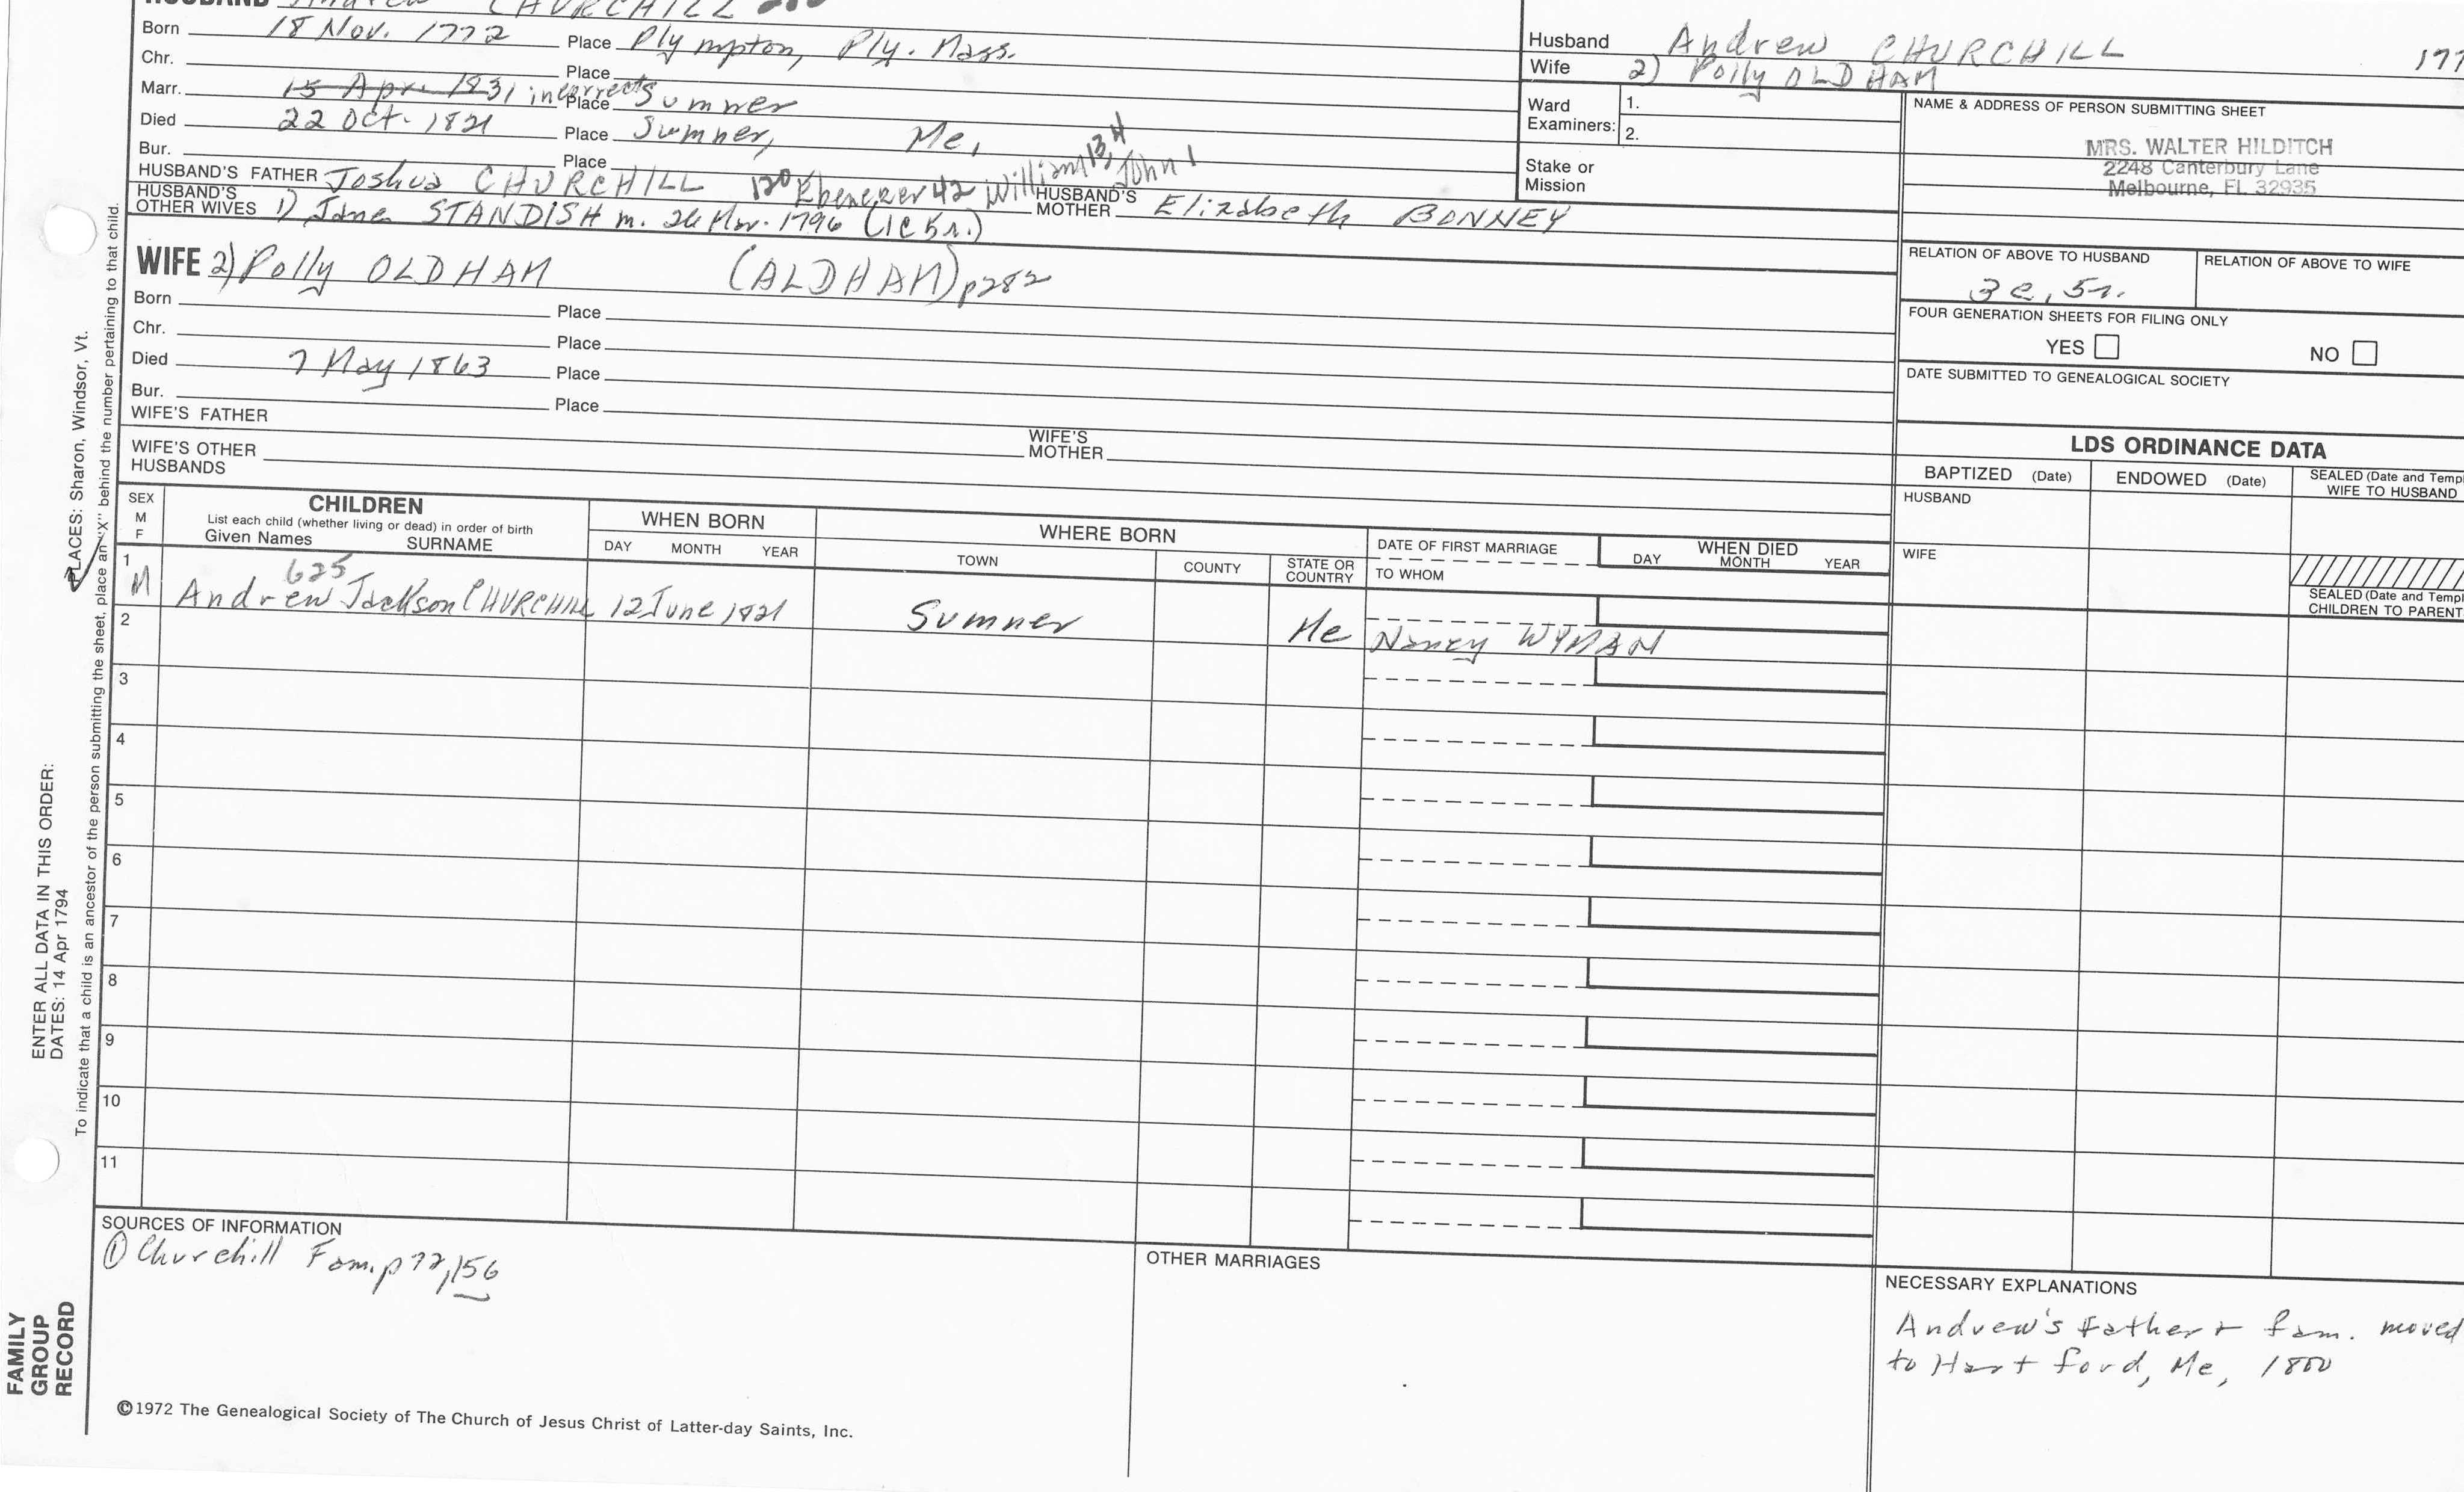 HUSBAND Andrew CHURCHILL
Born 18 Nov. 1772 Place Plympton, Ply. Mass.
Chr. Place
Marr. 15 Apr. 1831 incorrect Place Sumner
Died 22 Oct. 1821 Place Sumner, Me.
Bur. Place
HUSBAND'S FATHER Joshua CHURCHILL 120 Ebenezer 42 William 13 John 1
HUSBAND'S MOTHER Elizabeth BONNEY
HUSBAND'S OTHER WIVES 1) Jane STANDISH m. 26 Mar. 1796 (1C 5r.)
WIFE 2) Polly OLDHAM (ALDHAM) p282
Born Place
Chr. Place
Died 7 May 1863 Place
Bur. Place
WIFE'S FATHER
WIFE'S MOTHER
WIFE'S OTHER HUSBANDS
Husband Andrew CHURCHILL 177
Wife 2) Polly OLDHAM
Ward Examiners: 1.
2.
Stake or Mission
NAME & ADDRESS OF PERSON SUBMITTING SHEET
MRS. WALTER HILDITCH
2248 Canterbury Lane
Melbourne, FL 32935
RELATION OF ABOVE TO HUSBAND RELATION OF ABOVE TO WIFE
3c, 5r.
FOUR GENERATION SHEETS FOR FILING ONLY
YES NO
DATE SUBMITTED TO GENEALOGICAL SOCIETY
LDS ORDINANCE DATA
BAPTIZED (Date) ENDOWED (Date) SEALED (Date and Temp
WIFE TO HUSBAND
HUSBAND
WIFE
SEALED (Date and Templ
CHILDREN TO PARENT
SEX
M
F
CHILDREN
List each child (whether living or dead) in order of birth
Given Names SURNAME
WHEN BORN
DAY MONTH YEAR
WHERE BORN
TOWN COUNTY STATE OR COUNTRY
DATE OF FIRST MARRIAGE
TO WHOM
WHEN DIED
DAY MONTH YEAR
1
625
M Andrew Jackson CHURCHILL 12 June 1821 Sumner Me Nancy WYMAN
2
3
4
5
6
7
8
9
10
11
SOURCES OF INFORMATION
① Churchill Fam. p 72, 156
OTHER MARRIAGES
NECESSARY EXPLANATIONS
Andrew's father + fam. moved
to Hartford, Me, 1800
©1972 The Genealogical Society of The Church of Jesus Christ of Latter-day Saints, Inc.
FAMILY
GROUP
RECORD
ENTER ALL DATA IN THIS ORDER:
DATES: 14 Apr 1794
PLACES: Sharon, Windsor, Vt.
To indicate that a child is an ancestor of the person submitting the sheet, place an "X" behind the number pertaining to that child.